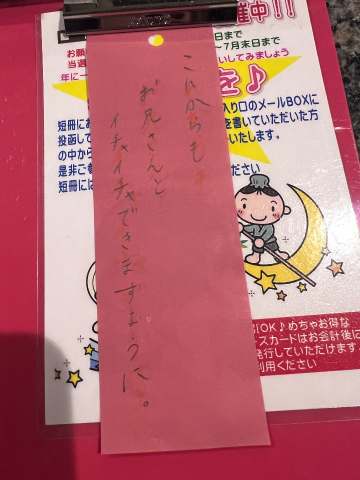 催中!!
日まで
～7月末日まで
お願
いしてみましょう
当選
年に一
を♪
短冊にお
入り口のメールBOXに
投函して
を書いていただいた方
の中から
いたします。
是非ご参
ください
短冊には
これからも
お兄さんと
イチャイチャできますように。
BIOK♪めちゃお得な
スカードはお会計後に
発行していただけます
利用ください